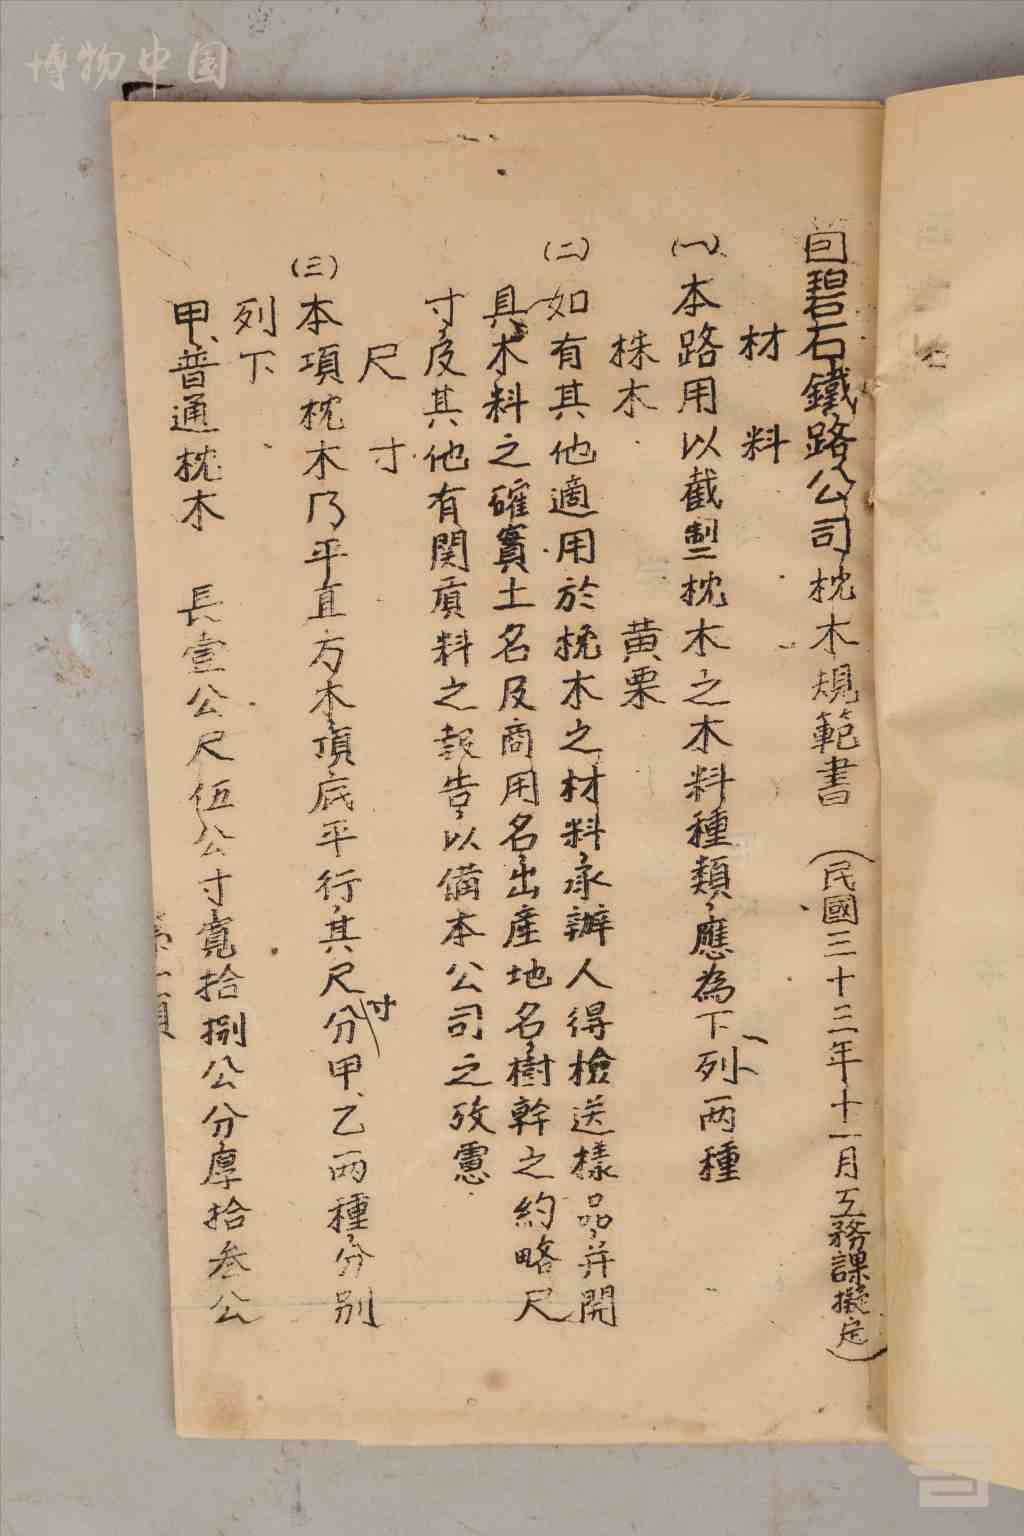 博物中国
囘碧石鐵路公司枕木規範書（民國三十三年十一月工務課擬定）
材料
(一)本路用以截製枕木之木料種類，應為下列兩種
株木　黄栗
(二)如有其他適用於枕木之材料，承辦人得檢送樣品，并開
具木料之確實土名及商用名，出產地名，樹幹之約略尺
寸，及其他有関質料之報告，以備本公司之攷慮．
尺寸
(三)本項枕木乃平直方木，頂底平行，其尺寸分甲、乙両種，分別
列下
甲、普通枕木　長壹公尺伍公寸寬拾捌公分厚拾叁公
第一頁